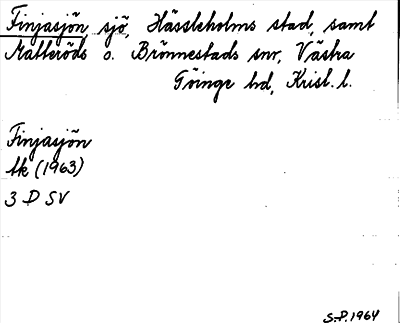 Finjasjön sjö, Hässleholms stad, samt
Matteröds o. Brönnestads snr, Västra
Göinge hd, Krist. l.
Finjasjön
tk (1963)
3 D SV
S.P. 1964